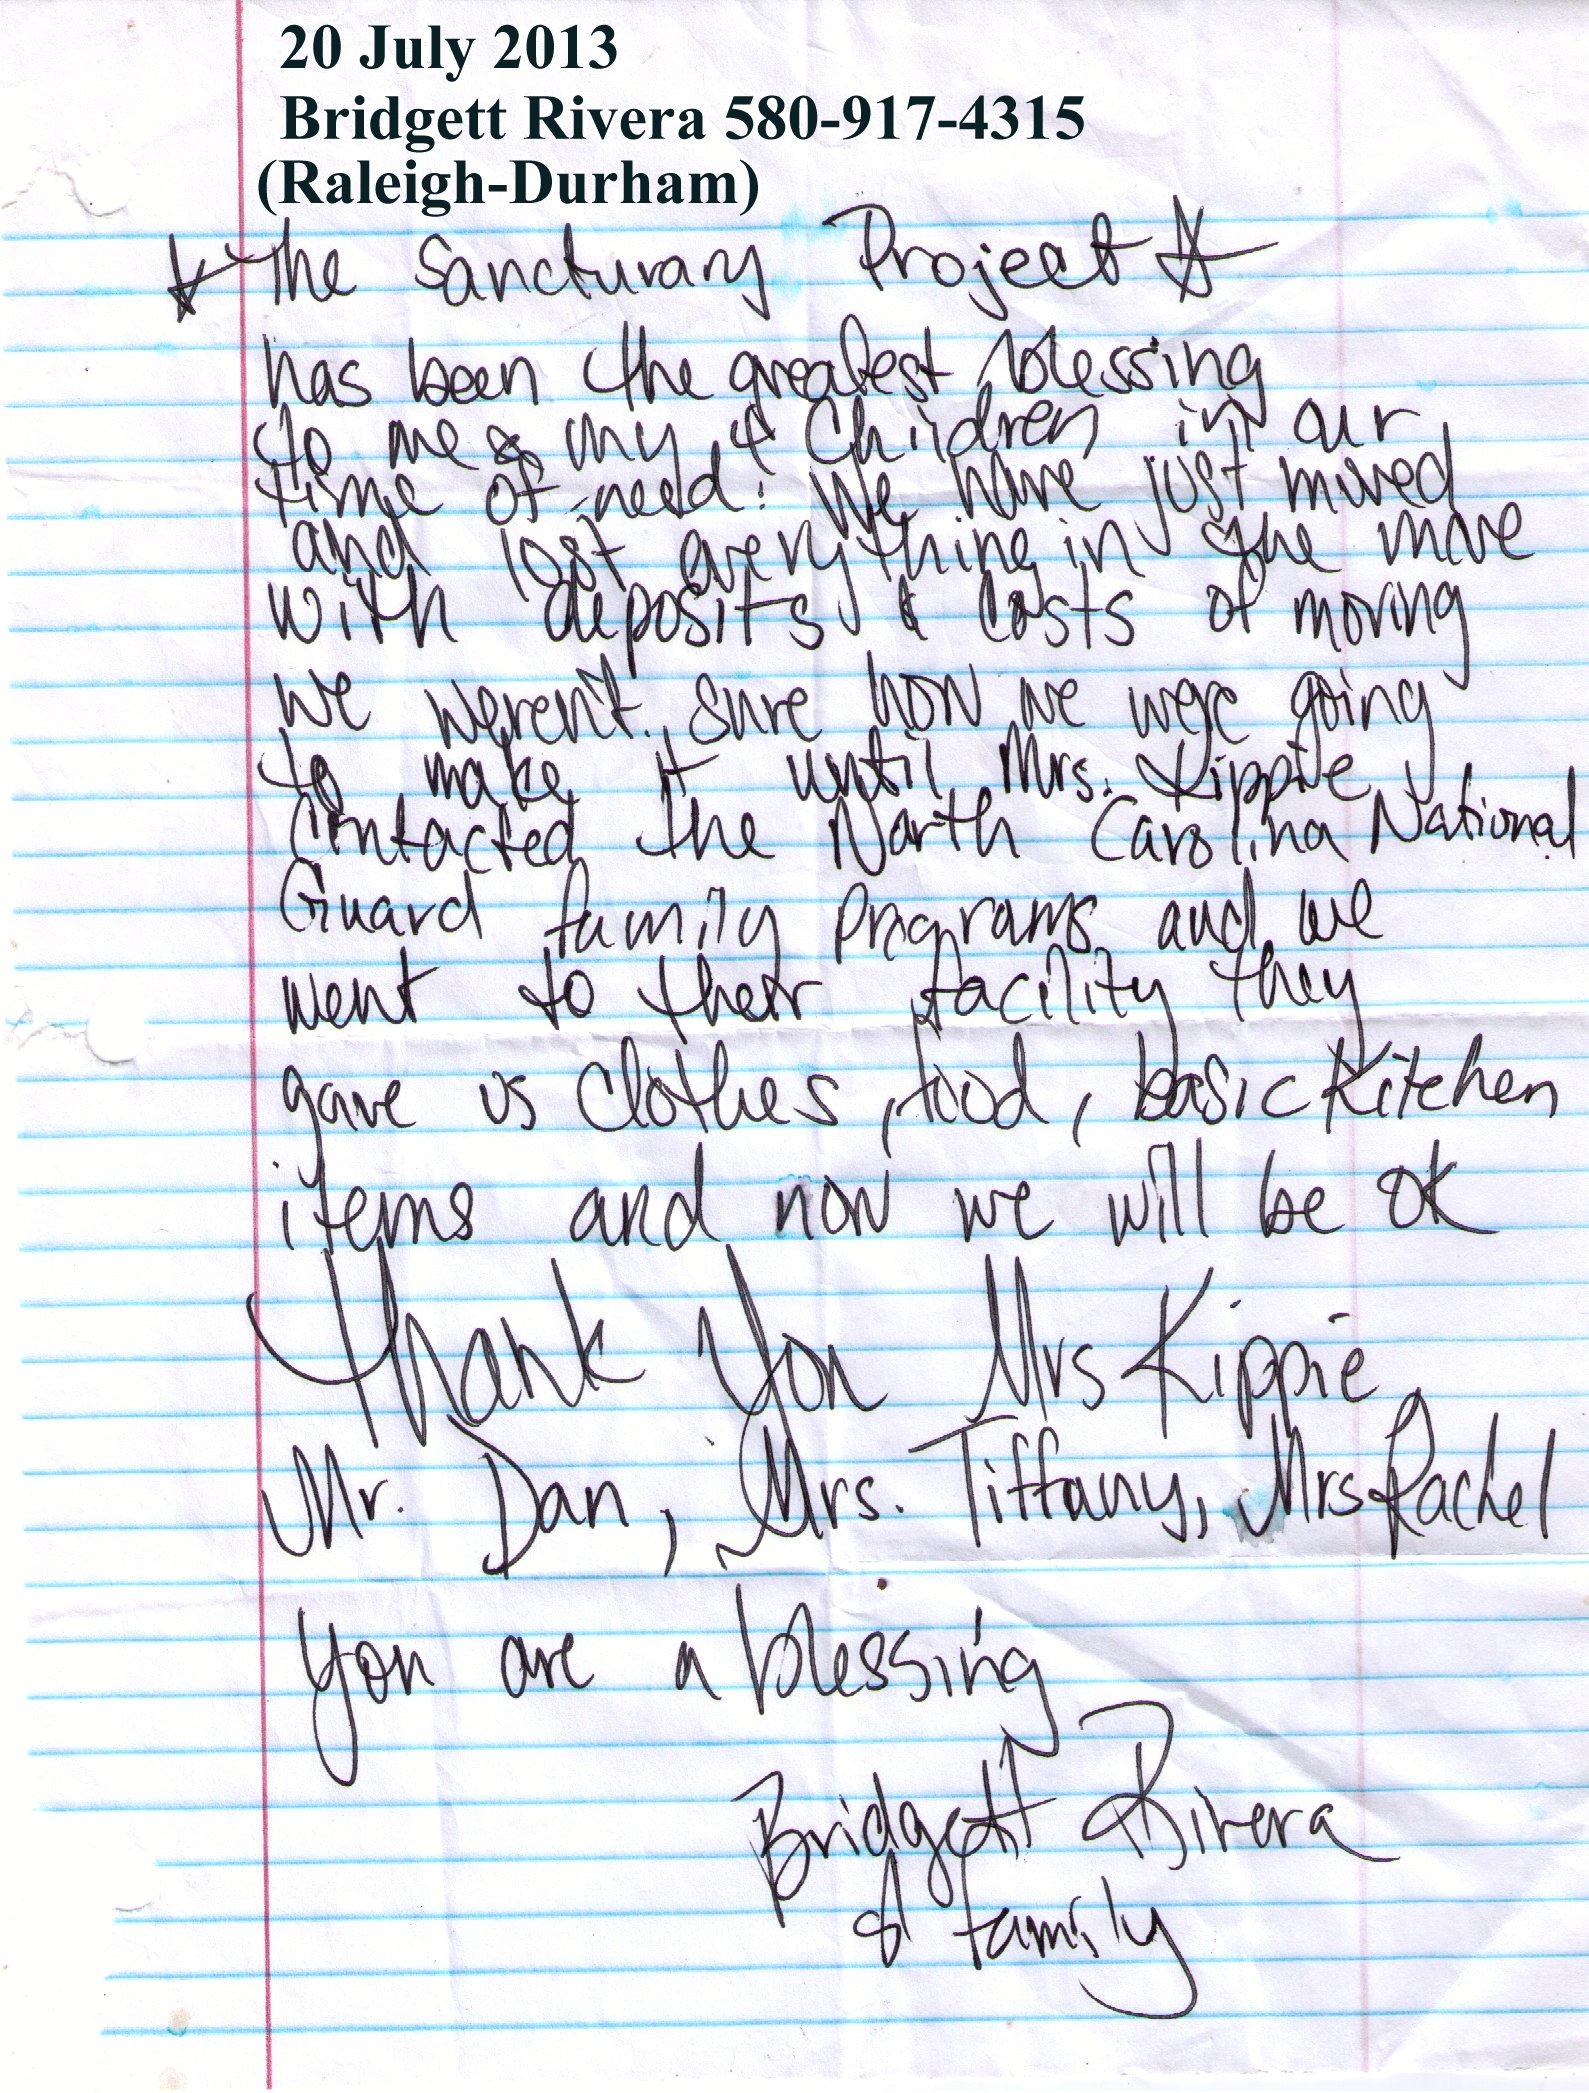 20 July 2013
Bridgett Rivera 580-917-4315
(Raleigh-Durham)
☆ The Sancturary Project ☆
has been the greatest blessing
to me & my 4 Children in our
time of need. We have just moved
and lost everything in the move
with deposits & costs of moving
We weren't sure how we were going
to make it until Mrs. Kippie
Contacted the North Carolina National
Guard family programs and we
went to their facility they
gave us clothes, food, basic Kitchen
items and now we will be ok
Thank You Mrs Kippie,
Mr. Dan, Mrs. Tiffany, Mrs Rachel
You are a blessing
Bridgett Rivera
& family